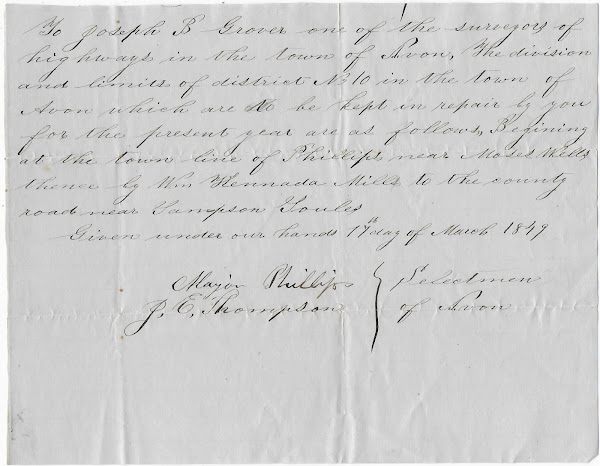 To Joseph B Grover one of the surveyors of
highways in the town of Avon, The division
and limits of district No 10 in the town of
Avon which are to be kept in repair by you
for the present year are as follows, Begining
at the town line of Phillips near Moses Wells
thence by Wm Kennada Mills to the county
road near Sampson Soules
Given under our hands 17th day of March 1849
Major Phillips } Selectmen
J. E. Thompson } of Avon